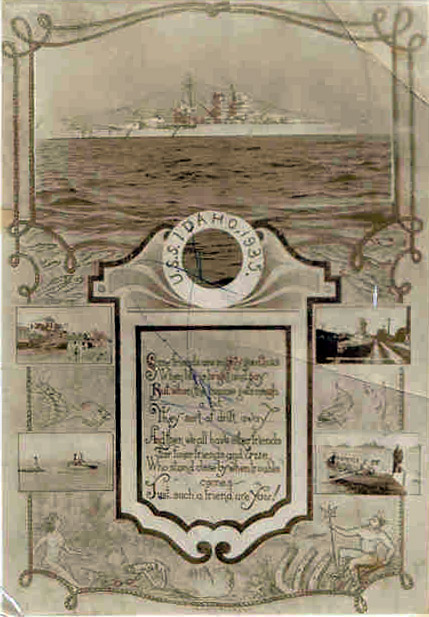 U.S.S. IDAHO, 1935.
Some friends are mighty
When is bright and gay
But when the gets rough
They sort of drift away
And then we all have other friends
Far finer friends and
Who stand close by when trouble
comes—
Just such a friend are You!